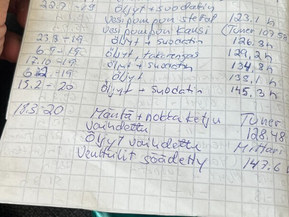 22.7 -19 öljyt + suodatin
Vesipumpun siefat 123.1 h
Vesipumpun kansi (Tuner 103.55
23.8 -19 Öljyt + suodatin 126.3 h
6.9 -19 Öljyt, takarengas 129.2 h
17.10 -19 öljyt + suodatin 134.2 h
-19 Öljyt 138.1 h
15.2 - 20 öljyt + suodatin 145.3 h
18.3 -20 Mäntä + nokkaketju Tuner
vaihdettu 128.48
Öljyt vaihdettu Mittari
Venttiilit säädetty 147.6